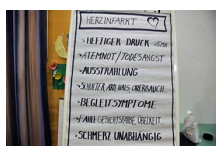 HERZINFARKT
• HEFTIGER DRUCK
• ATEMNOT / TODESANGST
• AUSSTRAHLUNG
SCHULTER ARM HALS OBERBAUCH
• BEGLEITSYMPTOME
FAHLE GESICHTSFARBE ÜBELKEIT
• SCHMERZ UNABHÄNGIG